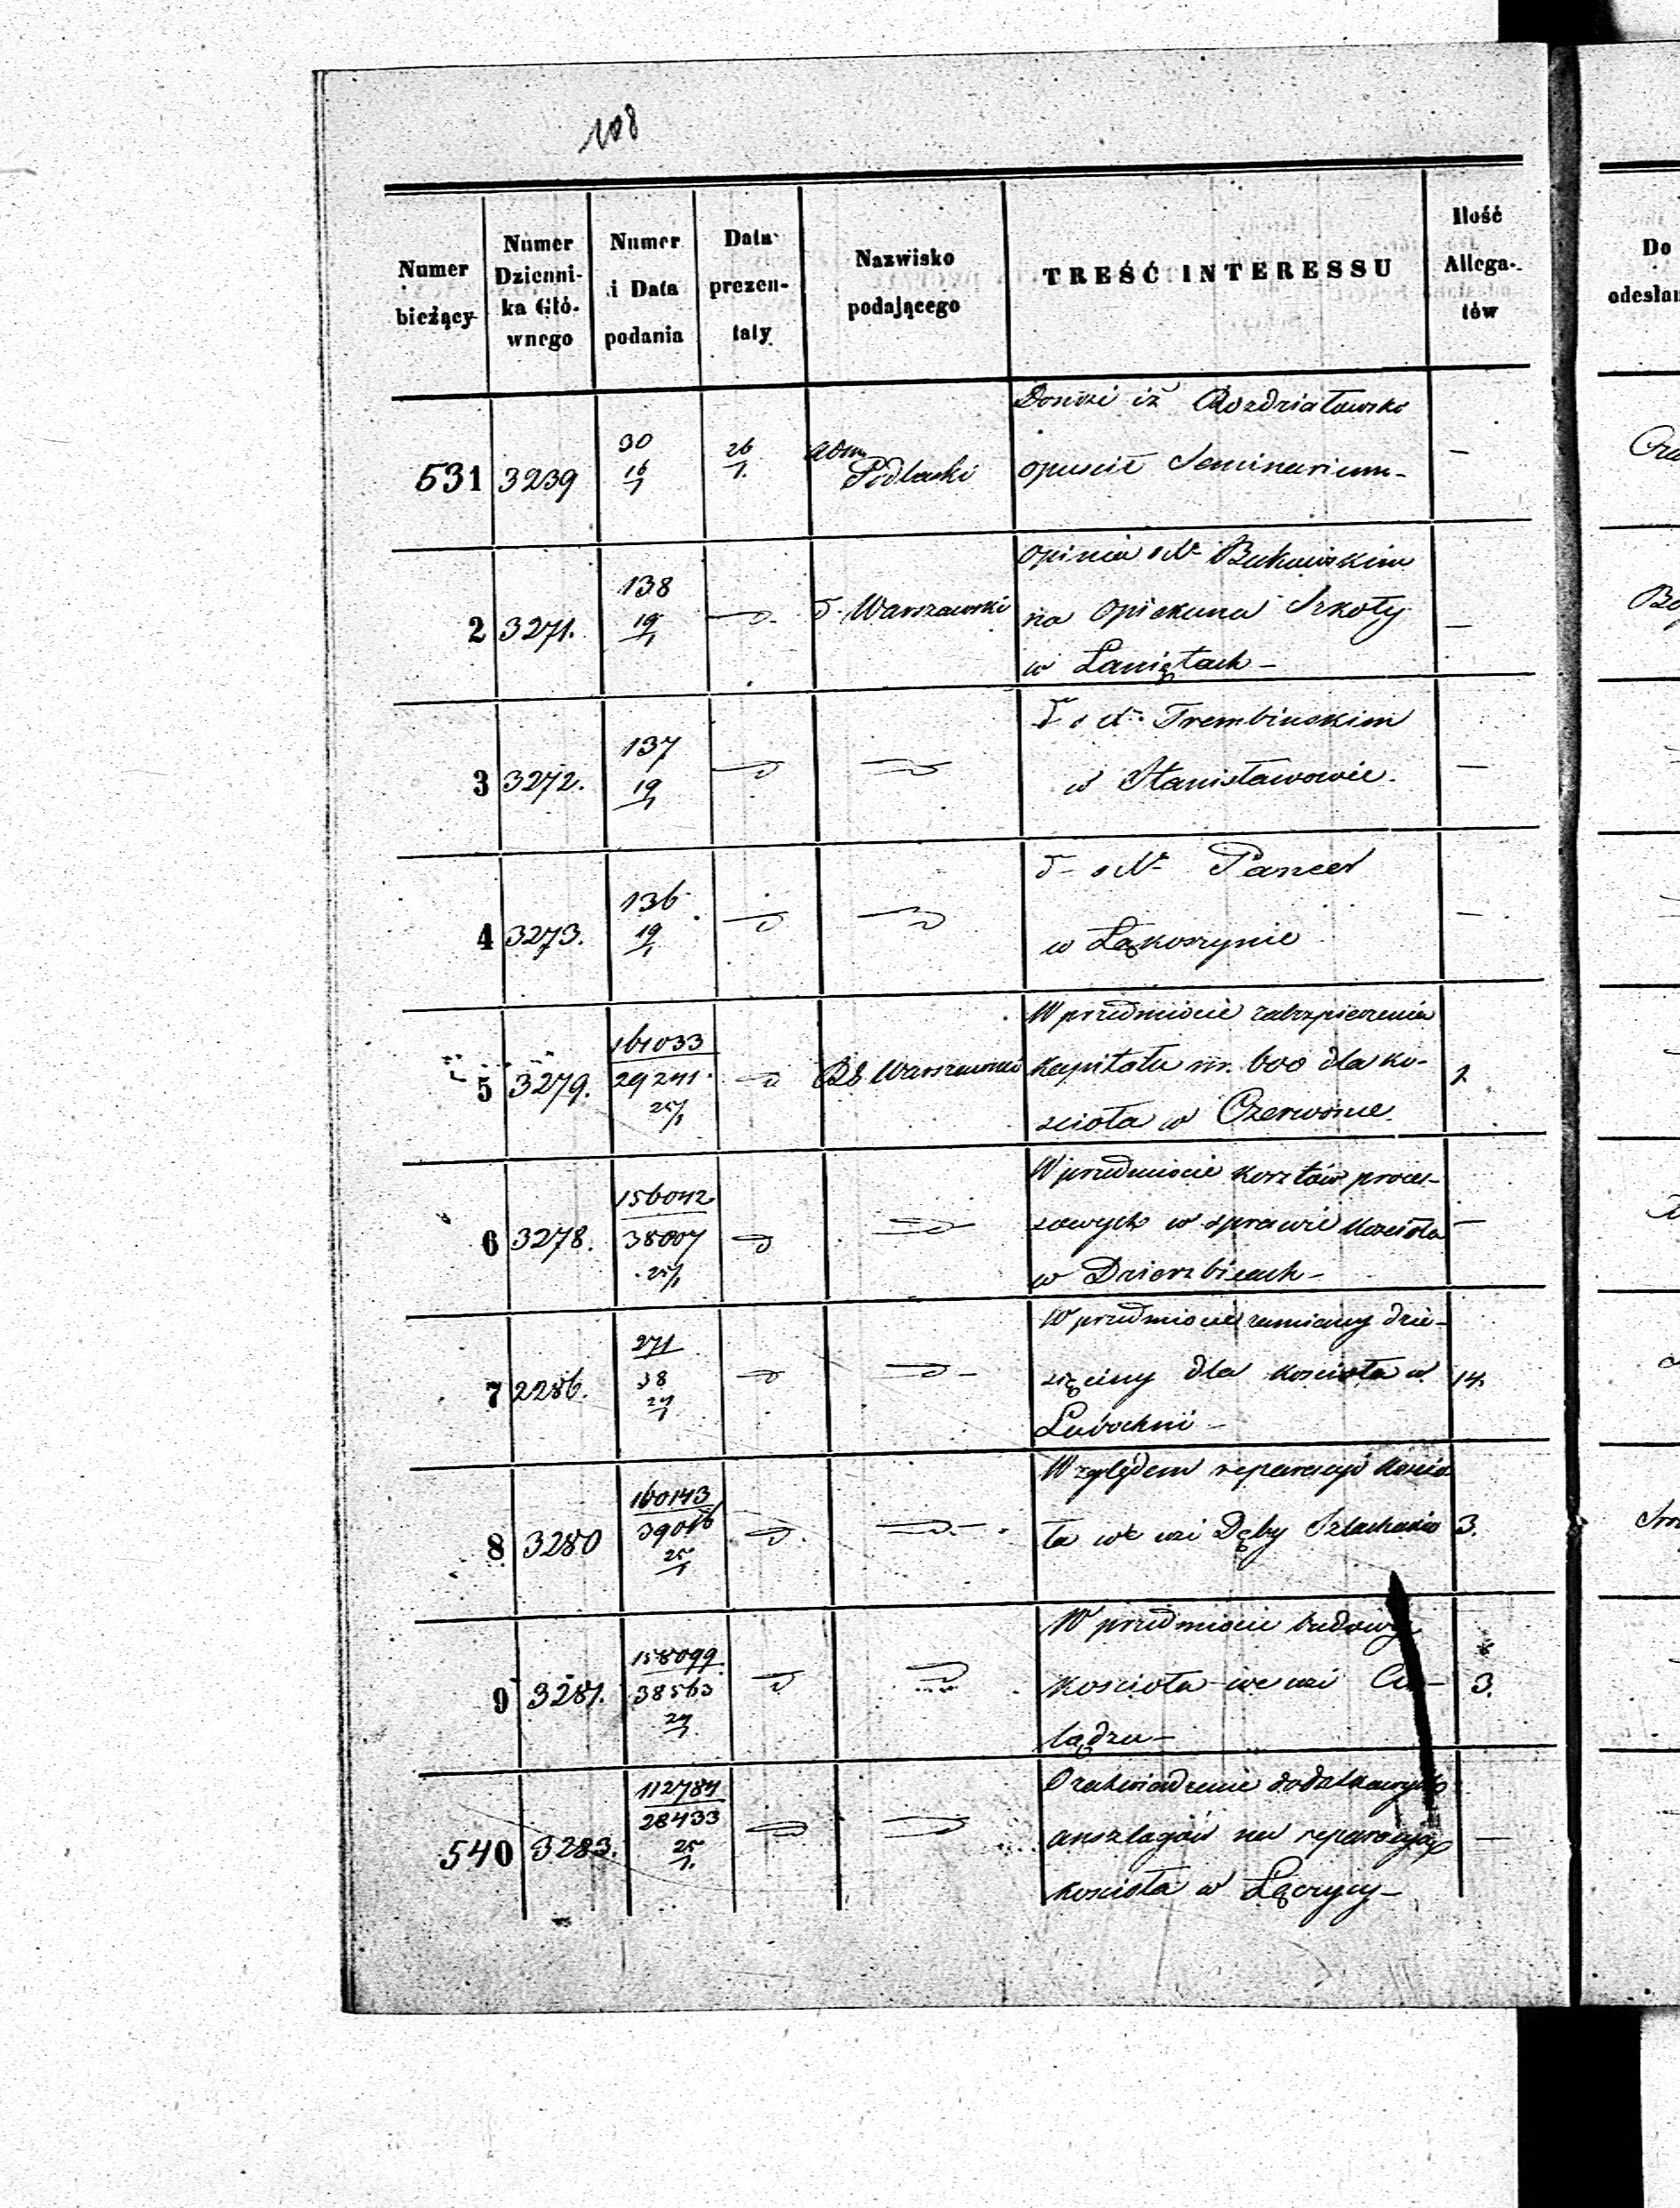 108
Numer bieżący
Numer Dzienni-ka Głó-wnego
Numer i Data podania
Data prezen-taty
Nazwisko podającego
TREŚĆ INTERESSU
Ilość Allega-tów
Do odesłan
531 3239 30 16/1 26/1. adm Podlaski Donosi iż Rozdziałowski
opuscił Seminarium — —
2 3271. 138 19/1 D. Warszawski Opinia o Nr Bukowskim
na Opiekuna Szkoły —
w Łaniętach —
3 3272. 137 19/1 o Trembinskim
w Stanisławowie. —
4 3273. 136 19/1 Pancer
w Łąkoszynie —
5 3279. 161033 25/1 Warszawski W przedmiocie zabezpieczenia
kapitału rs. 600 dla ko-
scioła w Czerwonce
6 3278. 25/1 W przedmiocie kosztów proces-
sowych w sprawie kościoła —
w Dzierzbicach —
7 2286. 271 38 W przedmiocie zamiany dzie-
sięciny dla kościoła w 14.
Lubochni —
8 3280 160143 25/1 Względem reparacyi kościo
ła we wsi Dęby Szlacheckie 3.
9 3281. 158099 38563 W przedmiocie budowy
kościoła we wsi Ci- 3.
lądzu —
540 3283. 112784 28433 25/1. O zatwierdzenie dodatkowych
anszlagów na reparacyą —
kościoła w Łęczycy —